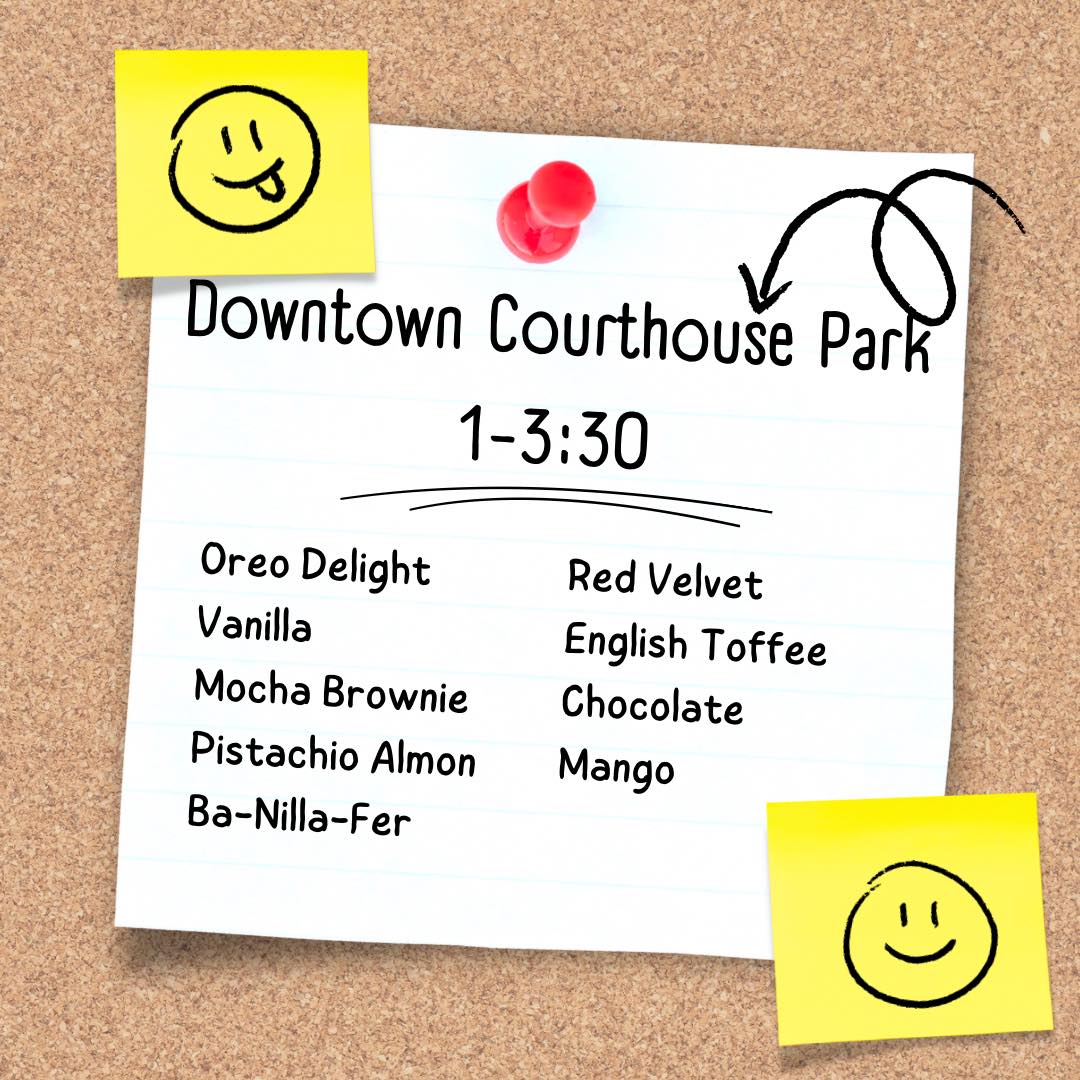 Downtown Courthouse Park
1-3:30
Oreo Delight
Vanilla
Mocha Brownie
Pistachio Almon
Ba-Nilla-Fer
Red Velvet
English Toffee
Chocolate
Mango